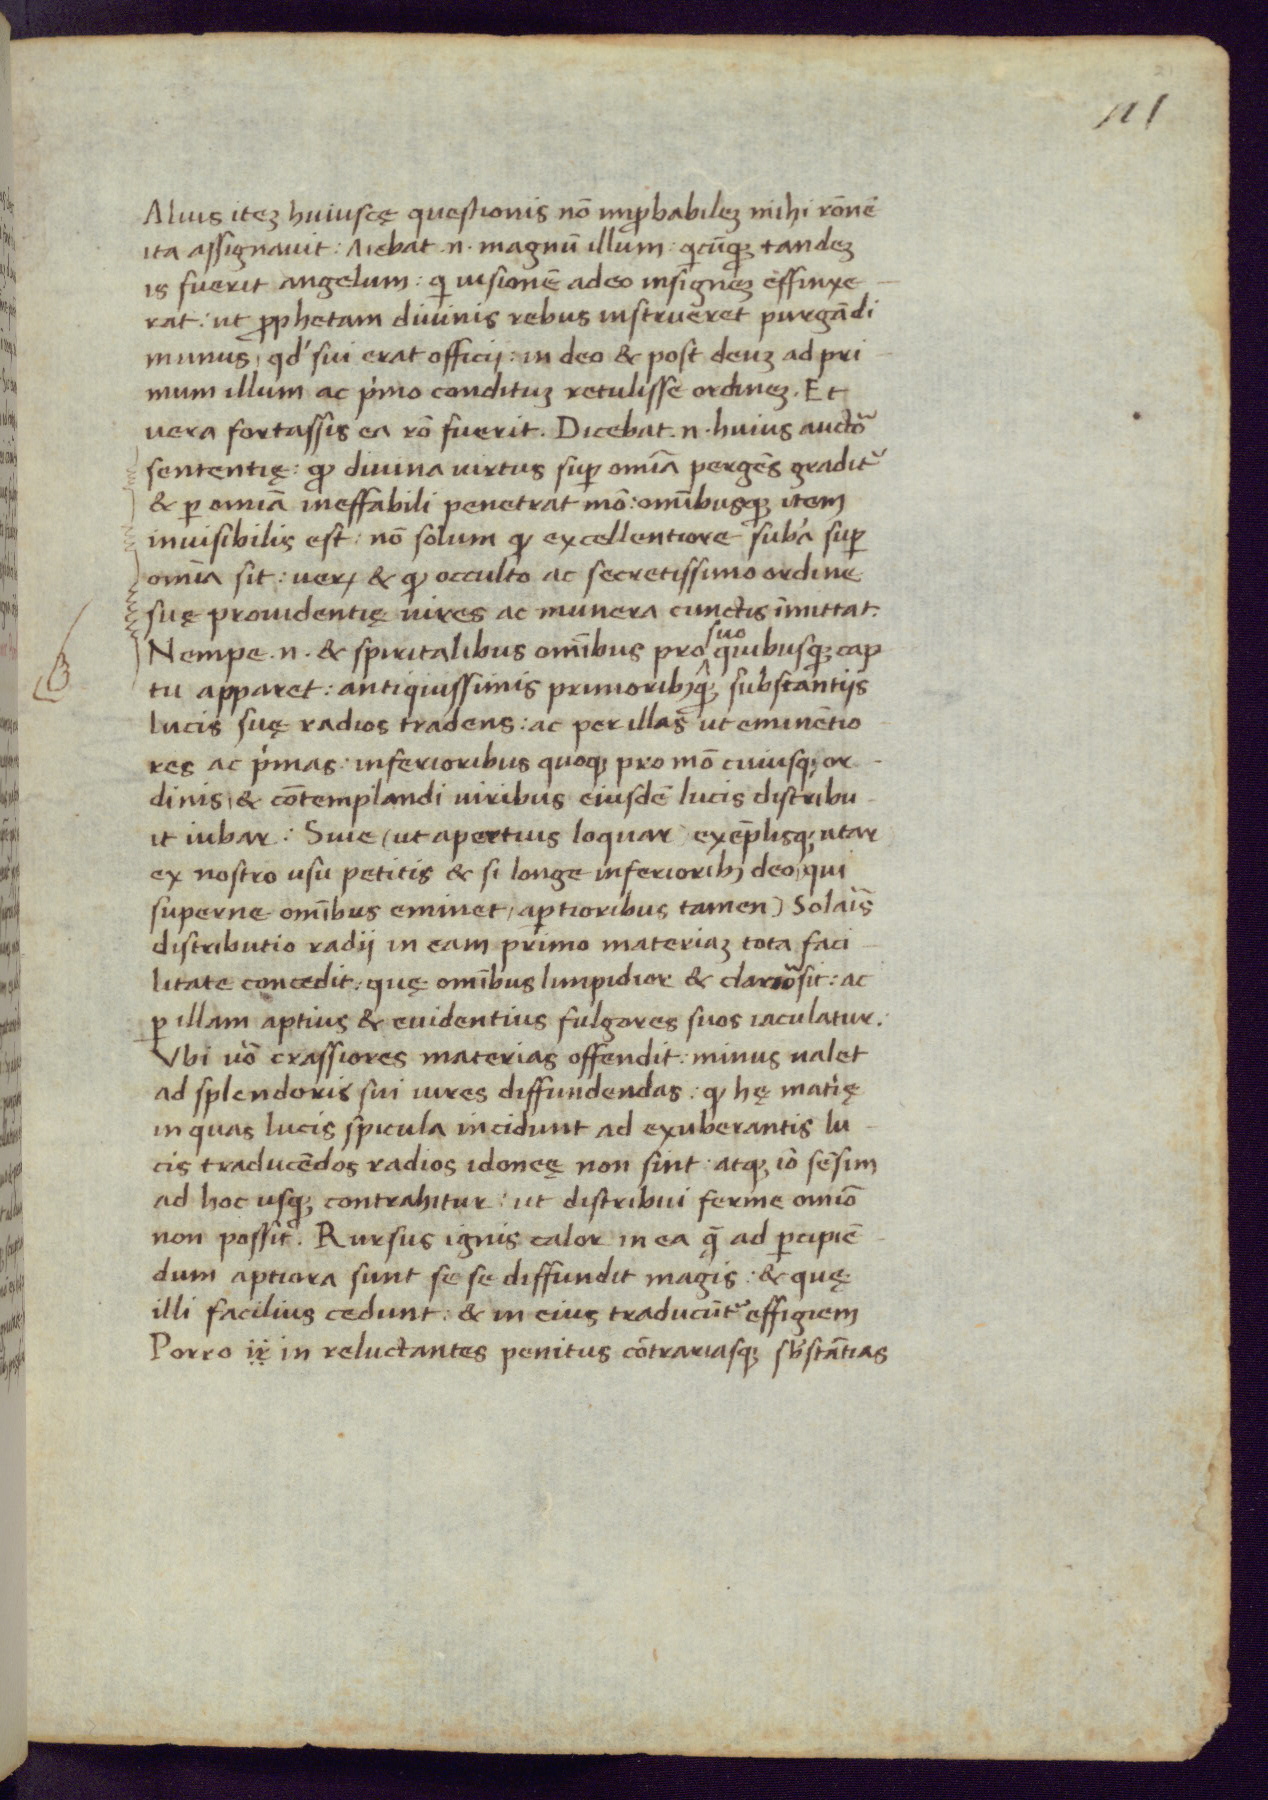 Alius iteꝫ huiuscę questionis nō īmꝓbabileꝫ mihi rōnē
ita assignauit: Aiebat .n. magnū illum: qͥcūqꝫ tandeꝫ
is fuerit angelum: qͥ uisionē adeo insigneꝫ effinxe
rat: ut ꝓphetam diuinis rebus instrueret purgādi
munus, qd' sui erat officij: in deo & post deuꝫ ad pri
mum illum ac pͥmo condituꝫ retulisse ordineꝫ. Et
uera fortassis ea rō fuerit. Dicebat .n. huius auctor̄
sententię: ꝙ diuina uirtus suꝑ omīa pergēs gradit᷑
& ꝑ omīa ineffabili penetrat mō: omībusqꝫ item
inuisibilis est: nō solum ꝙ excellentiore sub'a suꝑ
omīa sit: ueꝝ & ꝙ occulto ac secretissimo ordine
suę prouidentię uires ac munera cunctis īmittat.
suo
Nempe .n. & spiritalibus omībus pro quibusqꝫ cap
tu apparet: antiquissimis primoribꝫqꝫ substantijs
lucis suę radios tradens: ac per illas ut eminētio
res ac pͥmas: inferioribus quoqꝫ pro mō cuiusqꝫ or
dinis, & cōtemplandi uiribus eiusdē lucis distribu
it iubar: Siue (ut apertius loquar exēplisqꝫ utar
ex nostro usu petitis & si longe inferioribꝫ deo, qui
superne omībus eminet, aptioribus tamen) Solaīs
distributio radij in eam primo materiaꝫ tota faci
litate concedit: quę omībus limpidior & clarior sit: ac
ꝑ illam aptius & euidentius fulgores suos iaculatur.
Vbi uō crassiores materias offendit: minus ualet
ad splendoris sui uires diffundendas: ꝙ hę mat'ię
in quas lucis spicula incidunt ad exuberantis lu
cis traducēdos radios idoneę non sint: atqꝫ iō sēsim
ad hoc usqꝫ contrahitur: ut distribui ferme omīō
non possit. Rursus ignis calor in ea q̄ ad ꝑcipiē
dum aptiora sunt se se diffundit magis: & quę
illi facilius cedunt: & in eius traducūt᷑ effigiem
Porro in reluctantes penitus cōtrariasqꝫ sb'stātias